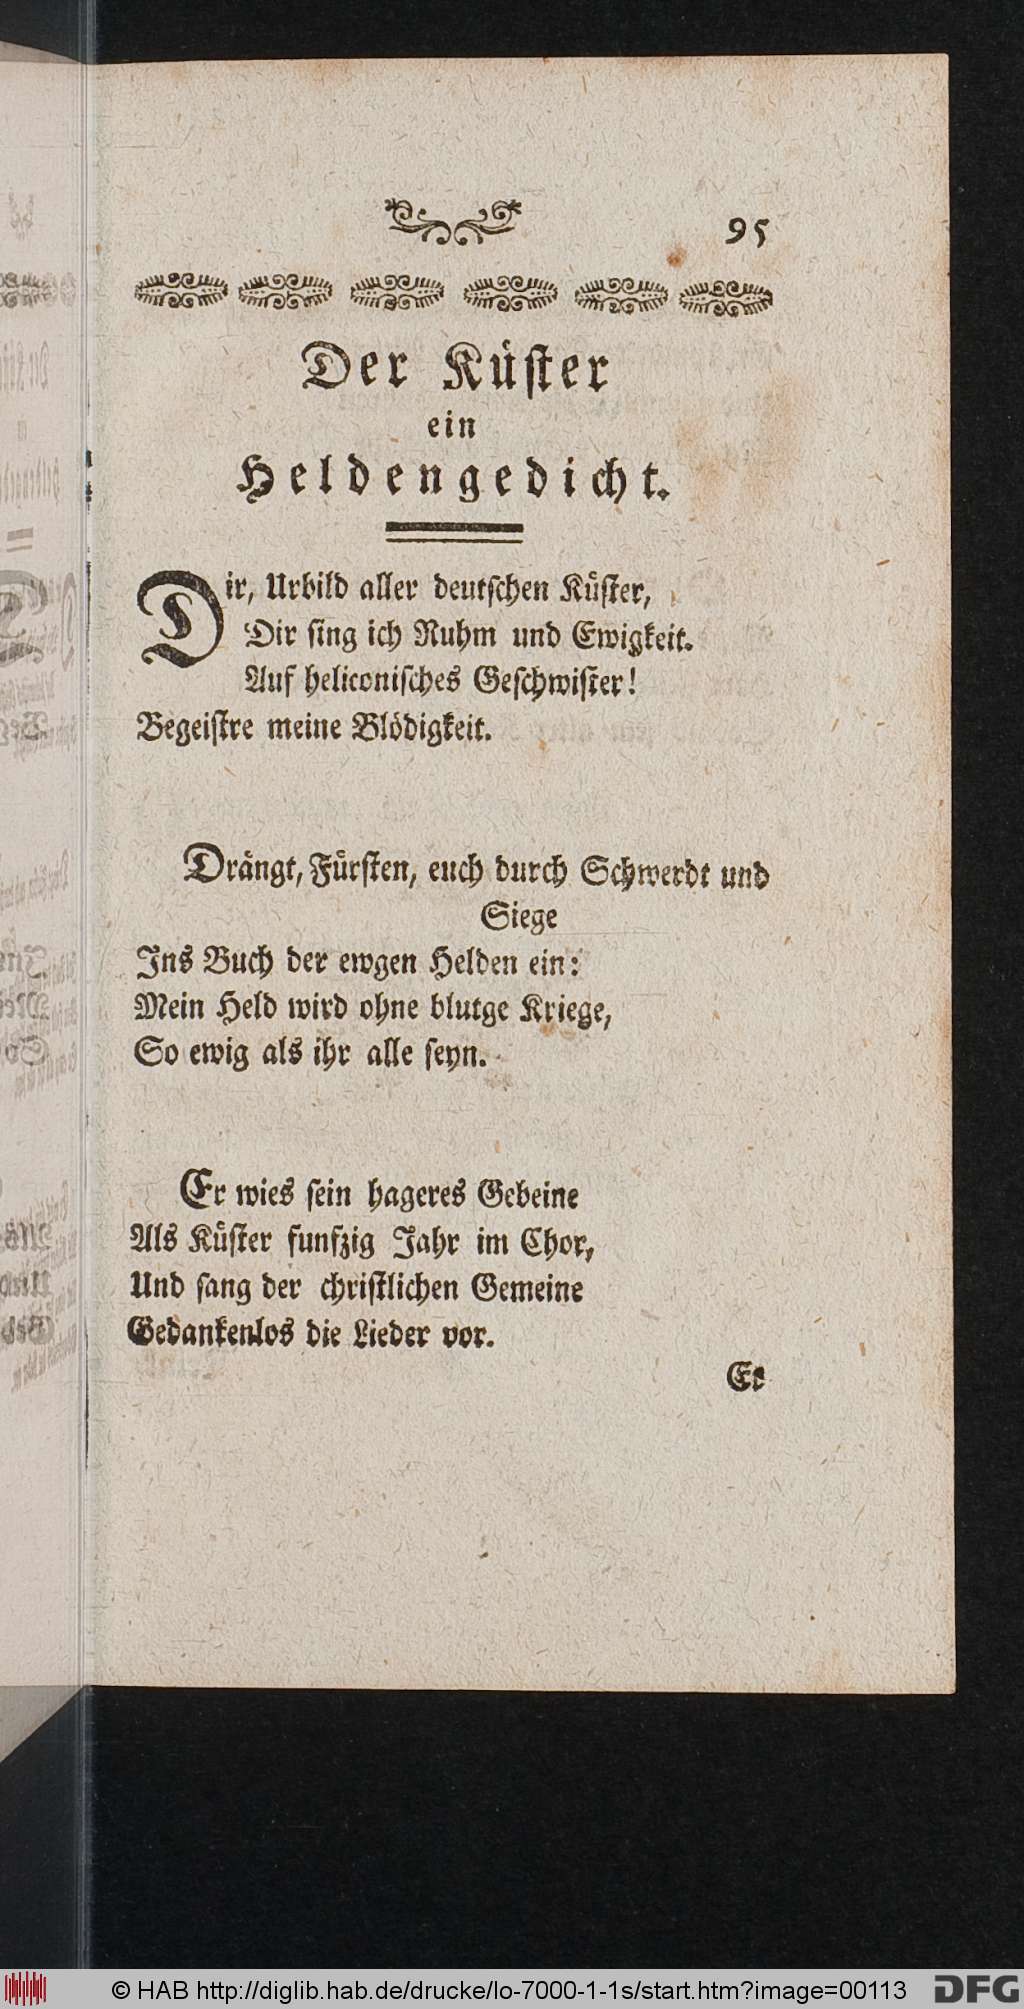 95
Der Küſter
ein
Heldengedicht.
Dir, Urbild aller deutſchen Küſter,
Dir ſing ich Ruhm und Ewigkeit.
Auf heliconiſches Geſchwiſter!
Begeiſtre meine Blödigkeit.
Drängt, Fürſten, euch durch Schwerdt und
Siege
Ins Buch der ewgen Helden ein:
Mein Held wird ohne blutge Kriege,
So ewig als ihr alle ſeyn.
Er wies ſein hageres Gebeine
Als Küſter funfzig Jahr im Chor,
Und ſang der chriſtlichen Gemeine
Gedankenlos die Lieder vor.
Er
© HAB http://diglib.hab.de/drucke/lo-7000-1-1s/start.htm?image=00113
DFG